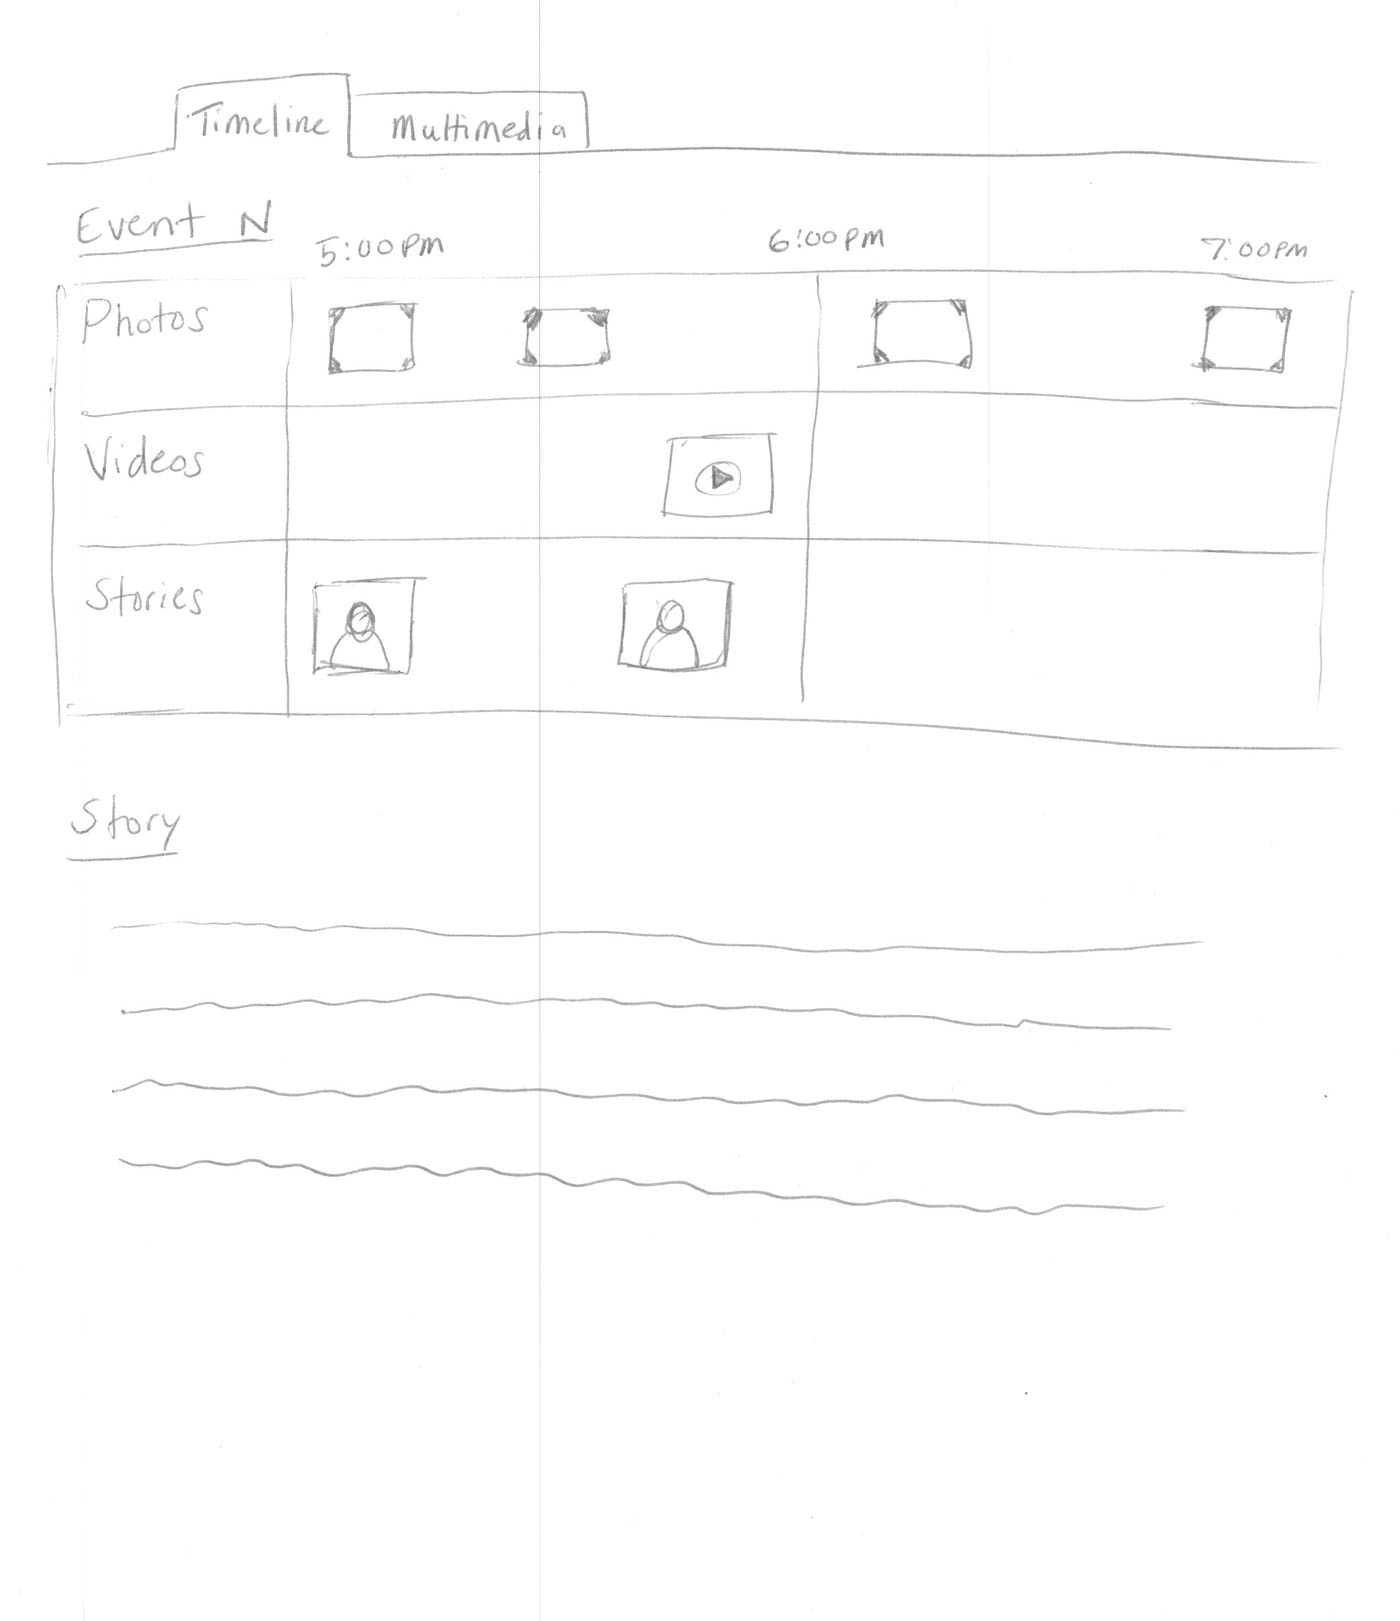 Timeline
Multimedia
Event N
5:00pm
6:00pm
7:00pm
Photos
Videos
Stories
Story